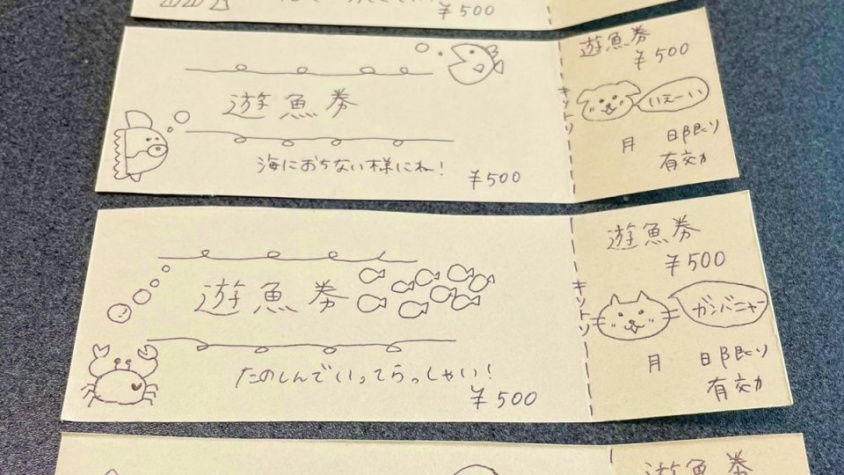 ¥500
遊魚券
¥500
キリトリ
いえーい
月 日限り
有効
遊魚券
海におちない様にね!
¥500
遊魚券
¥500
キリトリ
ガンバニャー
月 日限り
有効
遊魚券
たのしんでいってらっしゃい!
¥500
遊魚券